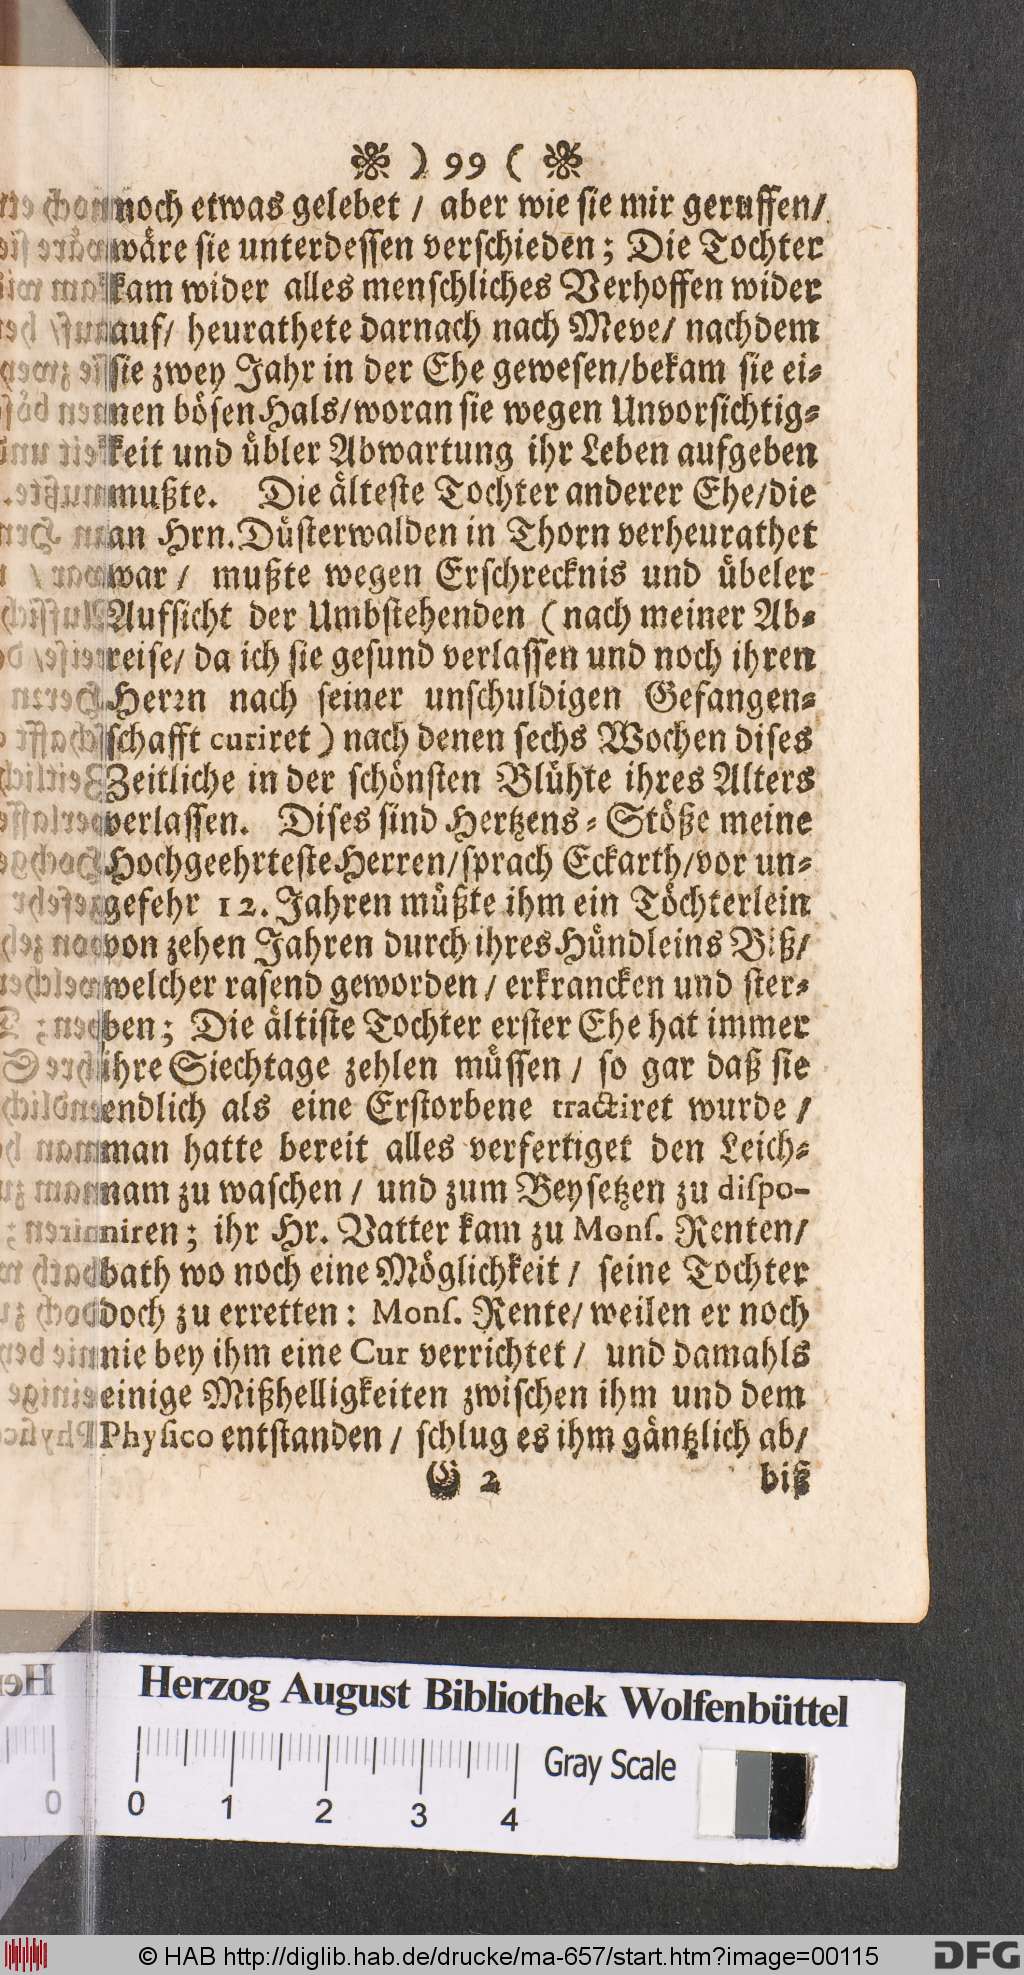 ) 99 (
noch etwas gelebet / aber wie sie mir geruffen/
wäre sie unterdessen verschieden; Die Tochter
kam wider alles menschliches Verhoffen wider
auf/ heurathete darnach nach Meve/ nachdem
sie zwey Jahr in der Ehe gewesen/bekam sie ei-
nen bösen Hals/woran sie wegen Unvorsichtig-
keit und übler Abwartung ihr Leben aufgeben
mußte. Die älteste Tochter anderer Ehe/die
an Hrn. Düsterwalden in Thorn verheurathet
war / mußte wegen Erschrecknis und übeler
Aufsicht der Umbstehenden (nach meiner Ab-
reise/ da ich sie gesund verlassen und noch ihren
Herrn nach seiner unschuldigen Gefangen-
schafft curiret) nach denen sechs Wochen dises
Zeitliche in der schönsten Blühte ihres Alters
verlassen. Dises sind Hertzens-Stöße meine
Hochgeehrteste Herren/sprach Eckarth/vor un-
gefehr 12. Jahren müßte ihm ein Töchterlein
von zehen Jahren durch ihres Hündleins Biß/
welcher rasend geworden / erkrancken und ster-
ben; Die ältiste Tochter erster Ehe hat immer
ihre Siechtage zehlen müssen / so gar daß sie
endlich als eine Erstorbene tractiret wurde /
man hatte bereit alles verfertiget den Leich-
nam zu waschen / und zum Beysetzen zu diſpo-
niren; ihr Hr. Vatter kam zu Monſ. Renten/
bath wo noch eine Möglichkeit / seine Tochter
doch zu erretten: Monſ. Rente/ weilen er noch
nie bey ihm eine Cur verrichtet / und damahls
einige Mißhelligkeiten zwischen ihm und dem
Phyſico entstanden / schlug es ihm gäntzlich ab/
G 2 biß
Herzog August Bibliothek Wolfenbüttel
Gray Scale
0 1 2 3 4
© HAB http://diglib.hab.de/drucke/ma-657/start.htm?image=00115
DFG